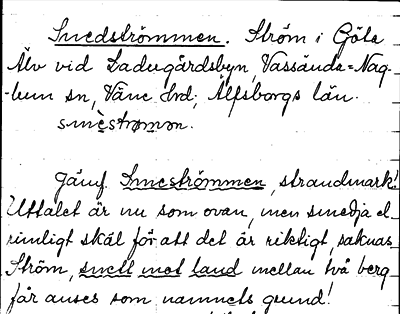 Smedströmmen. Ström i Göta
Älv vid Ladugårdsbyn, Vassända=Nag-
lum sn, Väne Hrd, Älfsborgs län.
smèstrømøn.
Jämf. Smeströmmen, strandmark!
Uttalet är nu som ovan, men smedja el.
rimligt skäl för att det är riktigt, saknas
Ström, smett mot land mellan två berg
får anses som namnets grund!